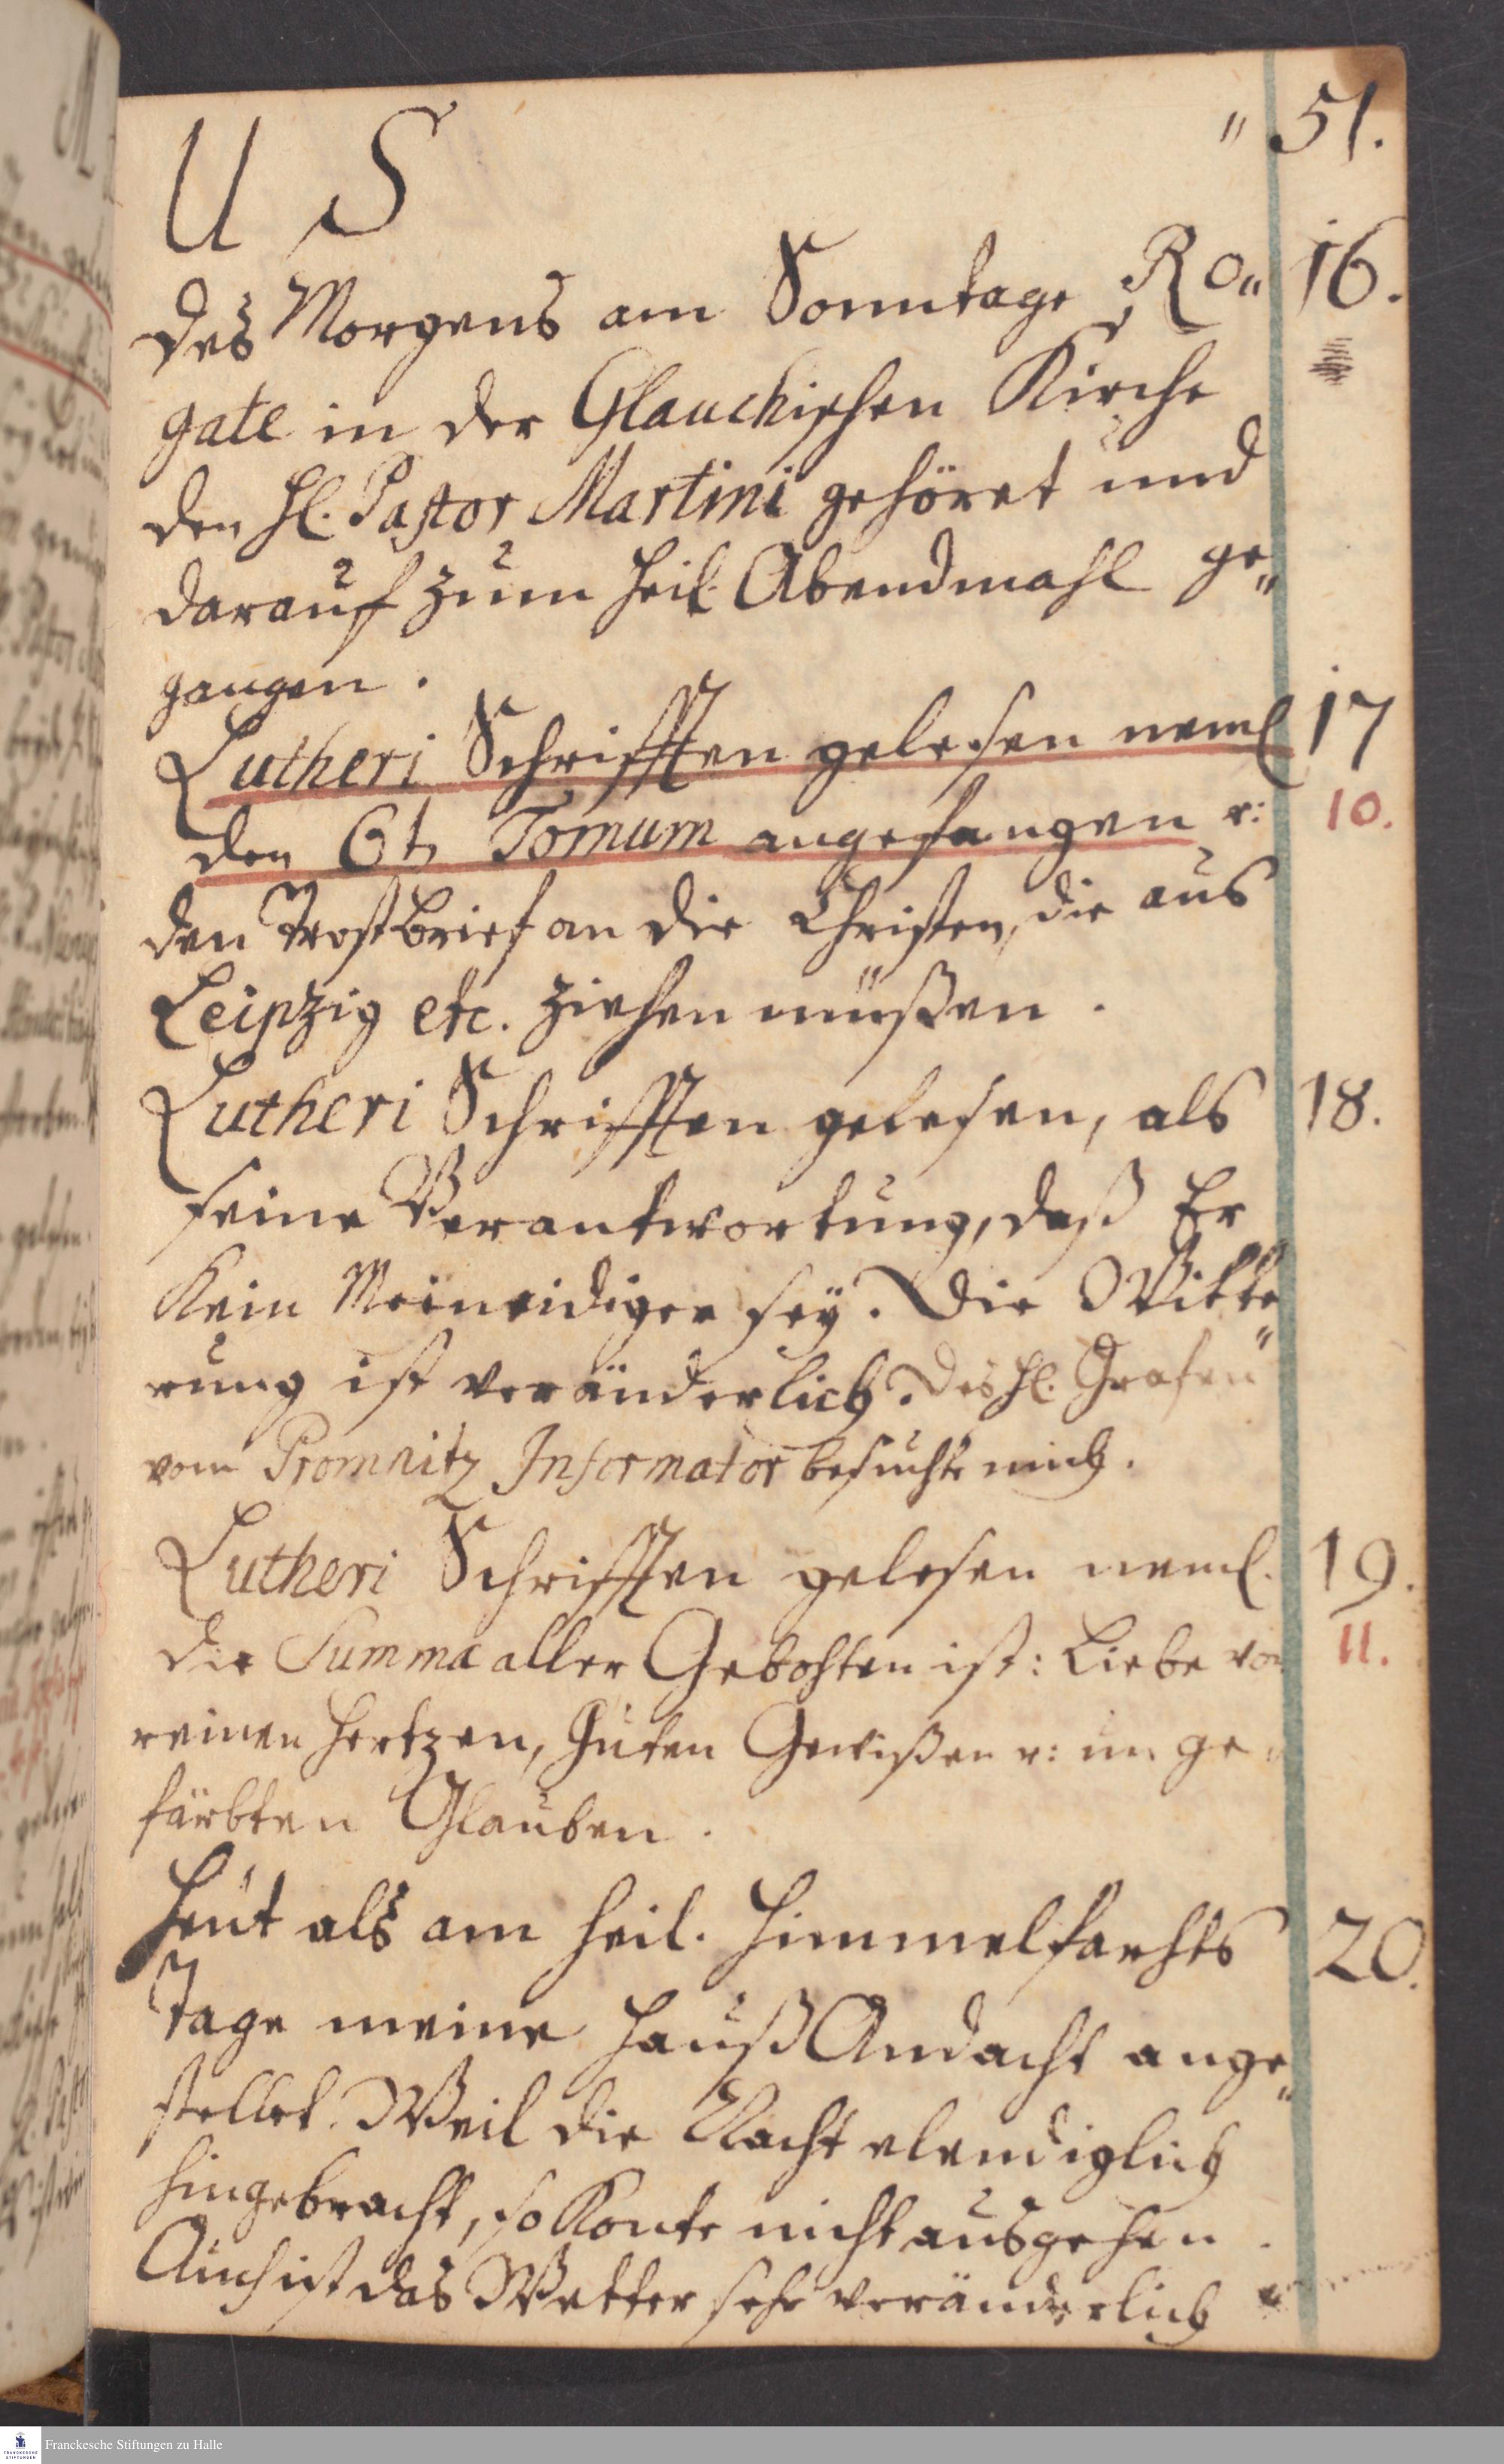 U S " 51.
des Morgens am Sonntage Ro" 16.
gate in der Glauchischen Kirche
den Hl. Pastor Martini gehöret und
darauf zum Heil. Abendmahl ge"
gangen.
Lutheri Schrifften gelesen neml 17
den 6t. Tomum angefangen u: 10.
den Trostbrief an die Christen, die aus
Leipzig etc. ziehen müßen.
Lutheri Schrifften gelesen, als 18.
seine Verantwortung, daß Er
Kein Meineidiger sey. Die Witte"
rung ist veränderlich. Des Hl. Grafen
vom Promnitz Informator besuchte mich.
Lutheri Schrifften gelesen neml. 19.
die Summa aller Gebohten ist: Liebe von 11.
reinen Hertzen, Guten Gewißen u: un ge"
färbten Glauben.
Heut als am heil. Himmelfarhts 20.
Tage meine Hauß Andacht ange"
stellet. Weil die Nacht elendiglich
hingebracht, so Konte nicht ausgehen.
Auch ist das Wetter sehr veränderlich
Franckesche Stiftungen zu Halle